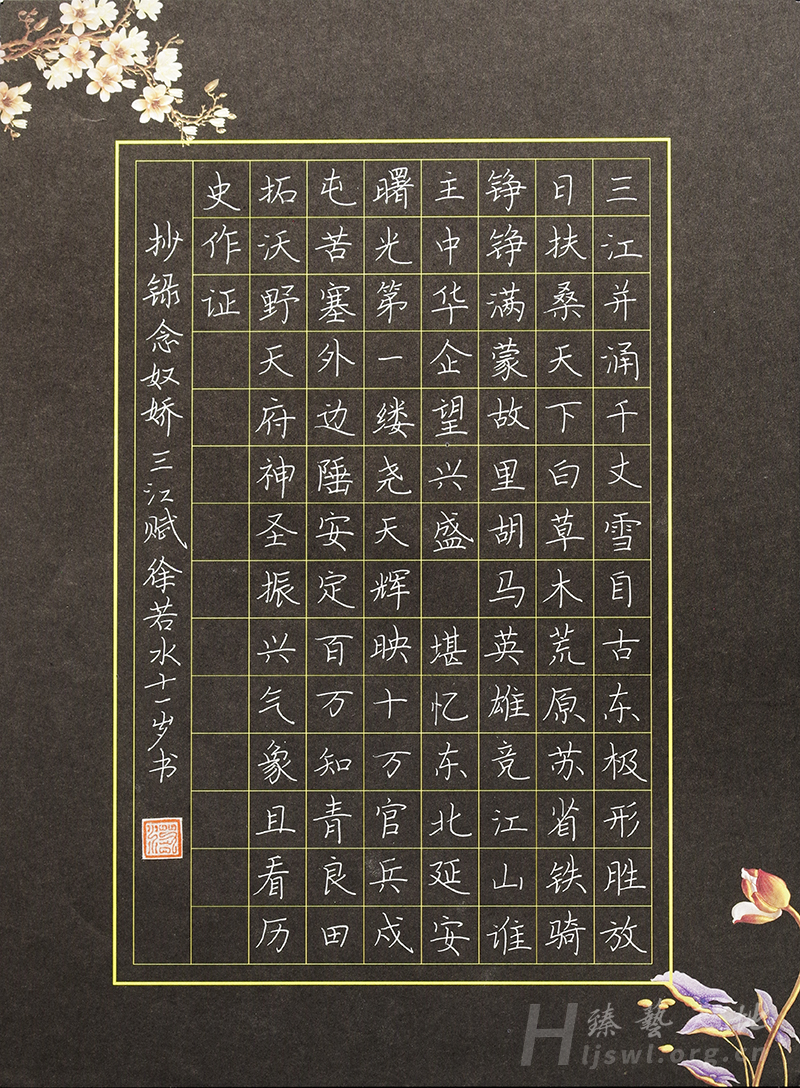 三江并涌千丈雪自古东极形胜放
日扶桑天下白草木荒原苏省铁骑
铮铮满蒙故里胡马英雄竞江山谁
主中华企望兴盛 堪忆东北延安
曙光第一缕尧天辉映十万官兵戍
屯苦塞外边陲安定百万知青良田
拓沃野天府神圣振兴气象且看历
史作证
抄录念奴娇三江赋徐若水十一岁书
臻艺
Hljswl.org.cn